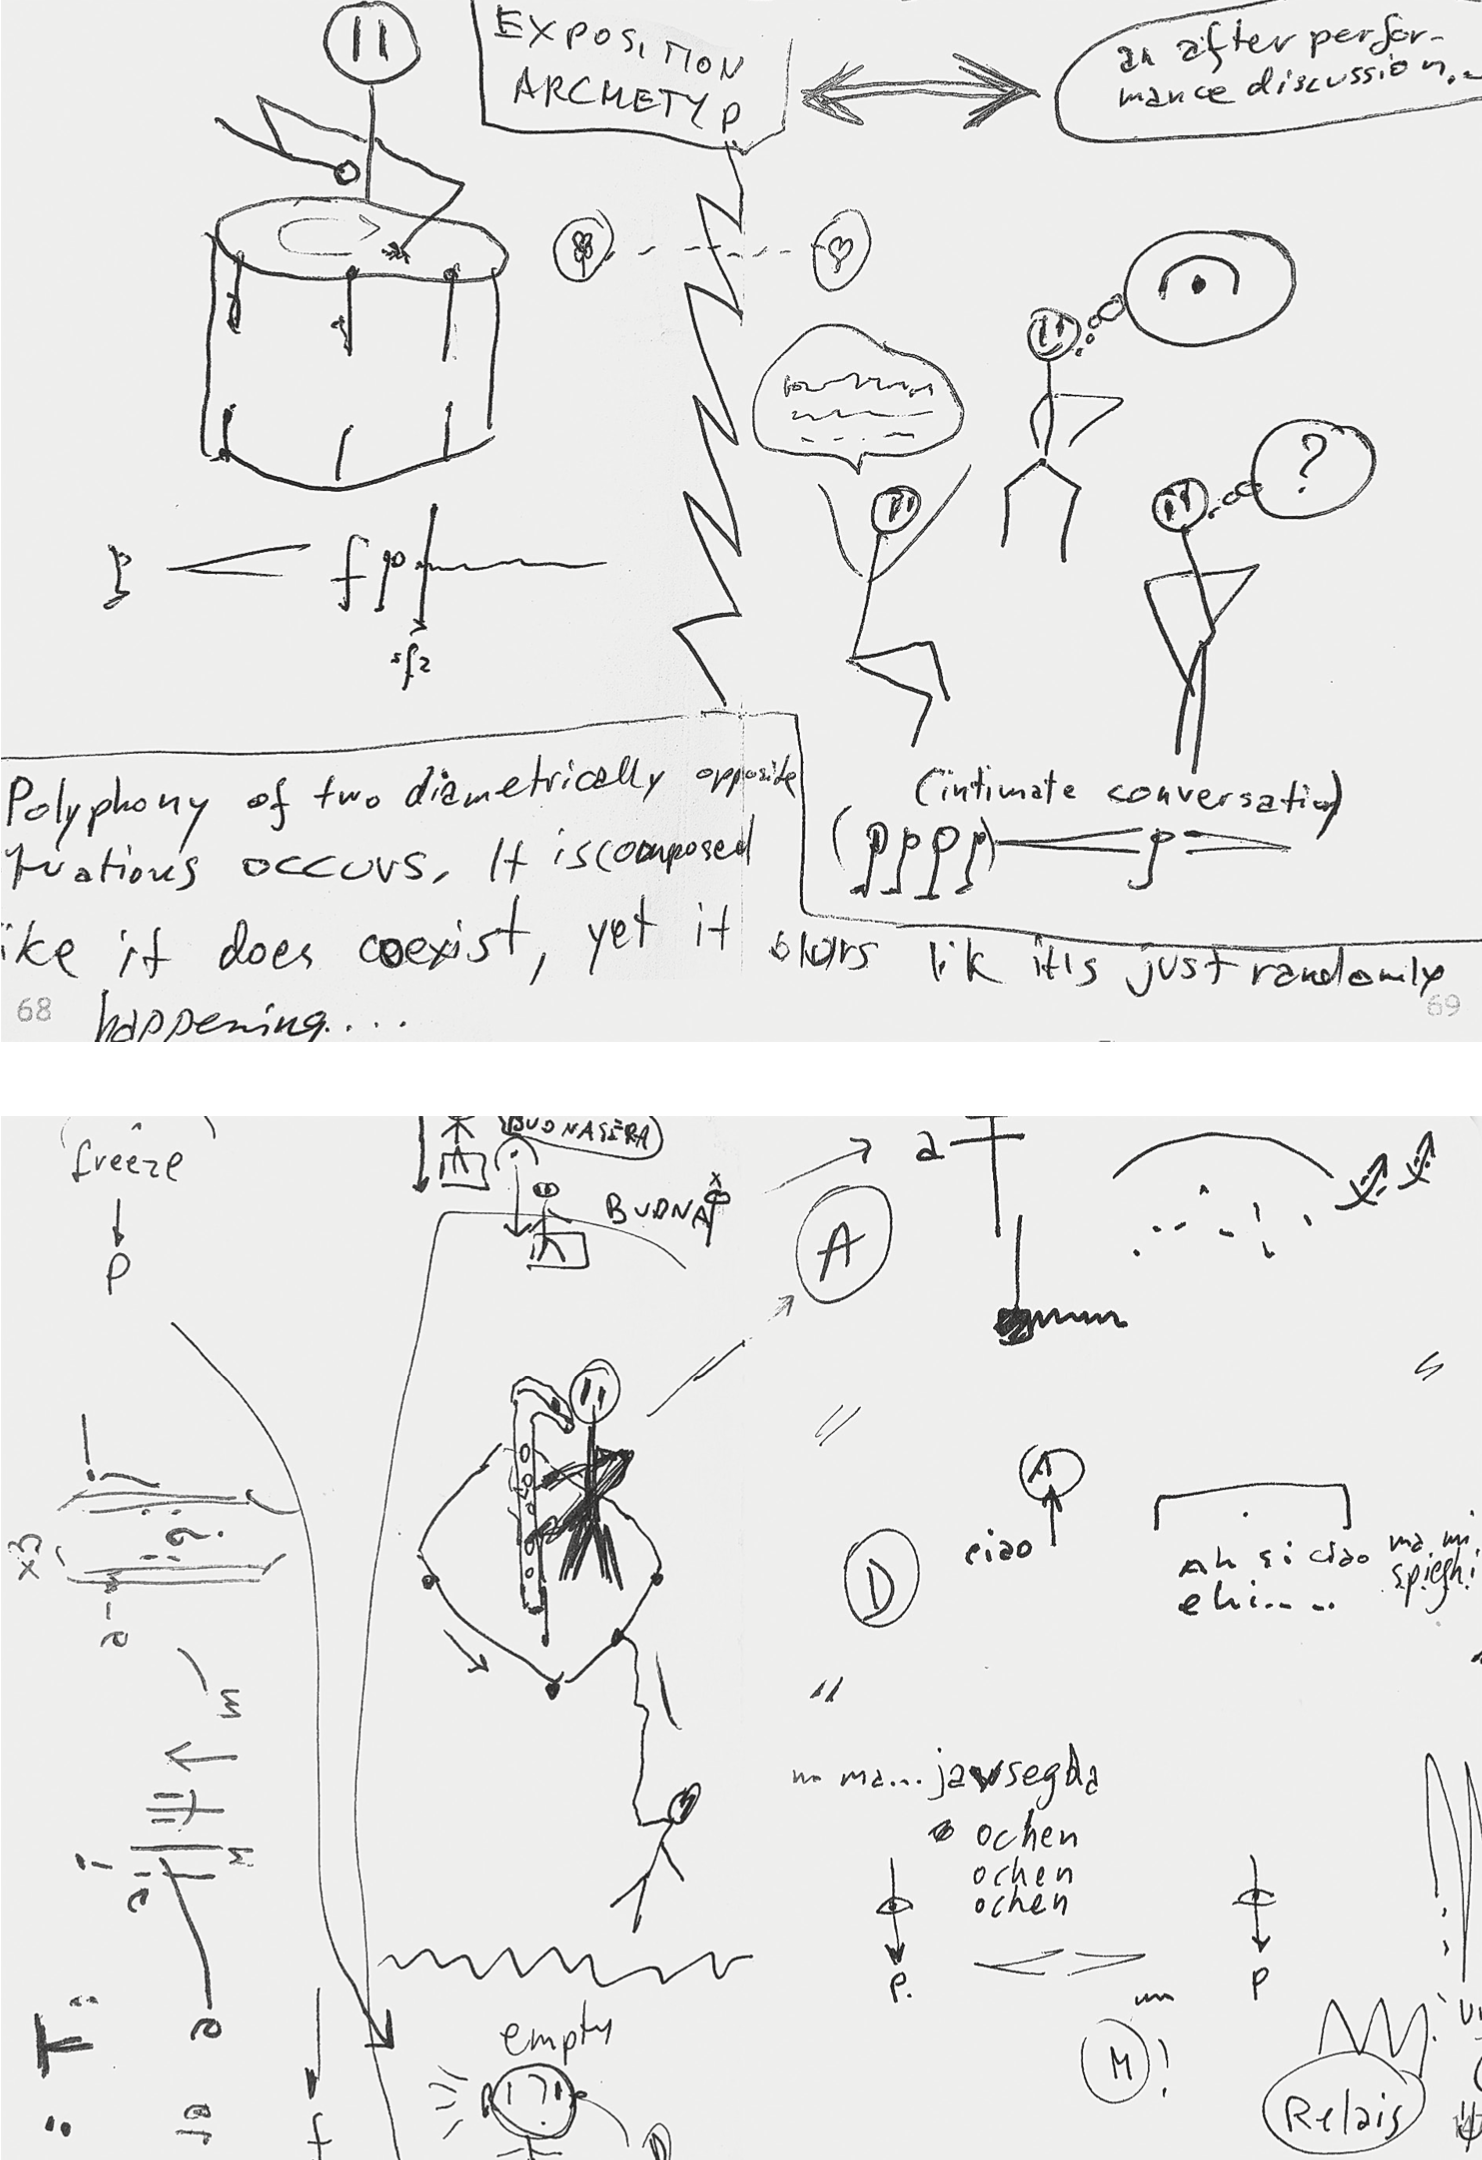 EXPOSITION
ARCHETYP
an after perfor-
mance discussion...
?
p
fp
sfz
Polyphony of two diametrically opposite
tuations occurs. It is composed
ike it does coexist, yet it blurs lik it is just randomly
happening....
(intimate conversation)
(pppp) p
68
69
freeze
P
BUONASERA
BUONA
A
a
x3
A
D
ciao
Ah si ciao
ehi.....
ma mi
spieghi
ma... ja vsegda
ochen
ochen
ochen
P.
P
M!
empty
f
Relais